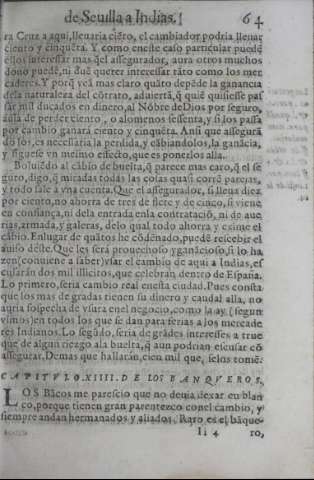 de Seuilla a Indias. 64
ra Cruz a aqui, lleuaria ciẽto, el cambiador podria lleuar
ciento y cinquẽta. Y como eneste caso particular puedẽ
ellos interessar mas q̃el assegurador, aura otros muchos
donò puedẽ, ni auẽ querer interessar tãto como los mer
caderes. Y porq̃ veã mas claro quãto depẽde la ganancia
dela naturaleza del cõtrato, aduiertã, q̃ quiẽ quisiesse pas
sar mil ducados en dinero, al Nõbre de Dios por seguro,
de perder ciento, o alomenos sessenta, y si los passa
por cambio ganarà ciento y cinquẽta. Ansi que assegurã
dolos, es necessaria la perdida, y cãbiandolos, la ganãcia,
y siguese vn mesmo effecto, que es ponerlos alla.
Boluiẽdo al cãbio de buelta, q̃ parece mas caro, q̃ el se
guro, digo, q̃ miradas todas las cosas quasi corrẽ parejas,
y todo sale a vna cuenta. Que el assegurador, si lleua diez
por ciento, no ahorra de tres de siete y de cinco, si viene
en confiança, ni dela entrada enla contrataciõ, ni de aue
rias, armada, y galeras, delo qual todo ahorra y exime el
cãbio. Enlugar de quãtos he cõdẽnado, puedẽ rescebir el
auiso deste. Que les serà prouechoso y ganãcioso, si lo ha
zen (conuiene a saber) vsar el cambio de aqui a Indias, es
cusarân dos mil illicitos, que celebran dentro de España.
Lo primero, seria cambio real enesta ciudad. Pues consta
que los mas de gradas tienen su dinero y caudal alla, no
auria sospecha de vsura enel negocio, como la ay (segun
vimos) en todos los que se dan para ferias a los mercade
res Indianos. Lo segũdo, seria de grãdes interesses a true
que de algun riezgo ala buelta, q̃ aun podrian escusar cõ
assegurar. Demas que hallarân, cien mil que, selos tomẽ.
CAPITVLO. XIIII. DE LOS BANQVEROS.
LOS Bãcos me parescio que no deuia dexar en blan
co, porque tienen gran parentezco conel cambio, y
siempre andan hermanados y aliados. Raro es el bãque-
Ii 4 ro,